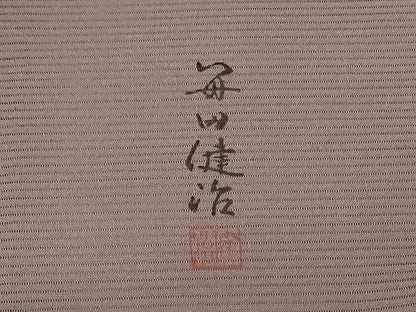 毎田健治